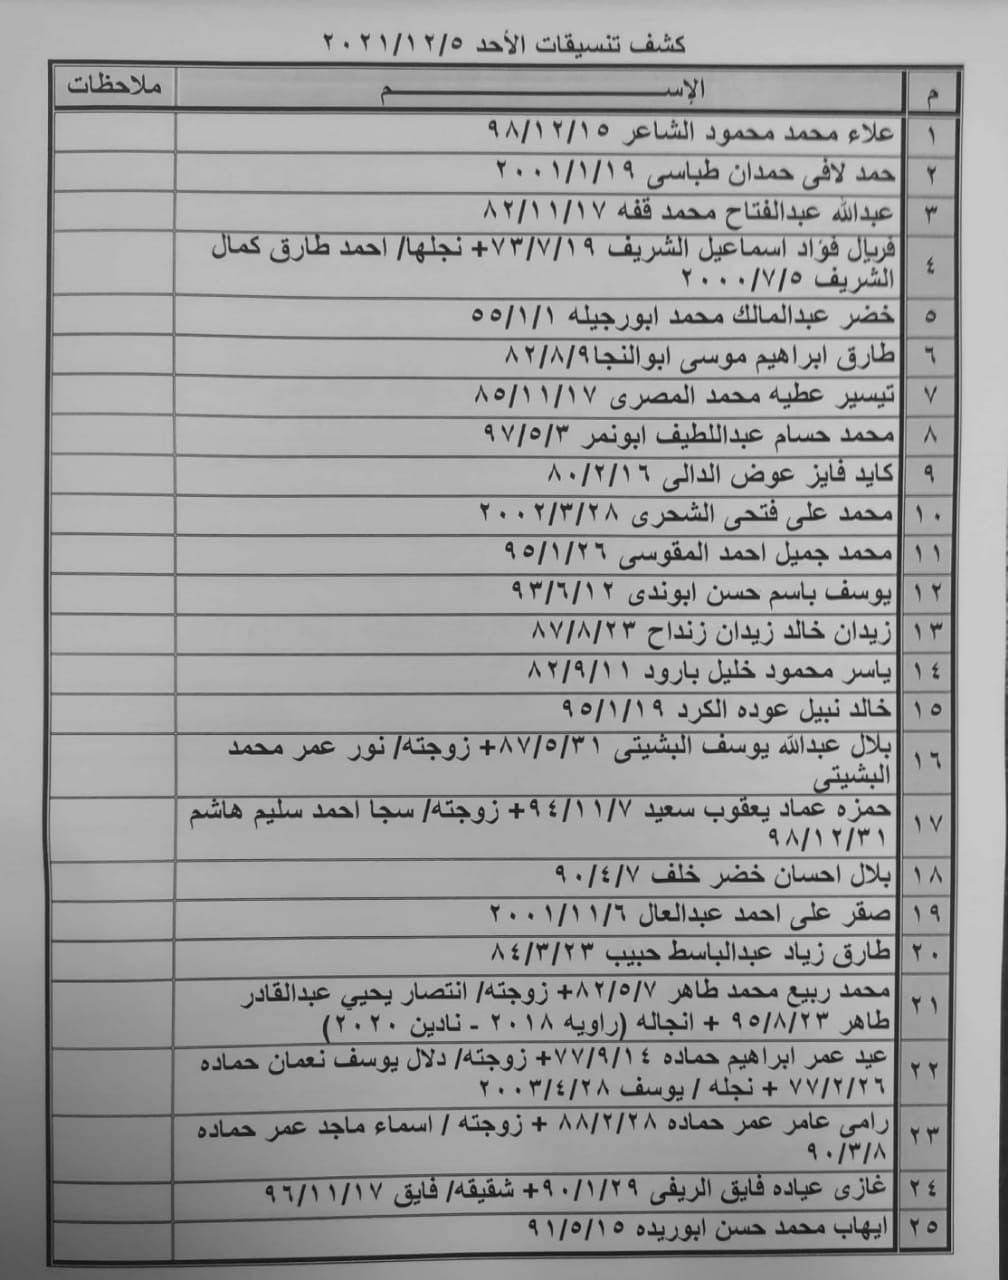 كشف تنسيقات الأحد ٢٠٢١/١٢/٥
م الإســـــــــــــــــــــــــم ملاحظات
١ علاء محمد محمود الشاعر ٩٨/١٢/١٥
٢ حمد لافى حمدان طباسى ٢٠٠١/١/١٩
٣ عبدالله عبدالفتاح محمد قفه ٨٢/١١/١٧
٤ فريال فؤاد اسماعيل الشريف ٧٣/٧/١٩+ نجلها/ احمد طارق كمال
الشريف ٢٠٠٠/٧/٥
٥ خضر عبدالمالك محمد ابورجيله ٥٥/١/١
٦ طارق ابراهيم موسى ابوالنجا٨٢/٨/٩
٧ تيسير عطيه محمد المصرى ٨٥/١١/١٧
٨ محمد حسام عبداللطيف ابونمر ٩٧/٥/٣
٩ كايد فايز عوض الدالى ٨٠/٢/١٦
١٠ محمد على فتحى الشحرى ٢٠٠٢/٣/٢٨
١١ محمد جميل احمد المقوسى ٩٥/١/٢٦
١٢ يوسف باسم حسن ابوندى ٩٣/٦/١٢
١٣ زيدان خالد زيدان زنداح ٨٧/٨/٢٣
١٤ ياسر محمود خليل بارود ٨٢/٩/١١
١٥ خالد نبيل عوده الكرد ٩٥/١/١٩
١٦ بلال عبدالله يوسف البشيتى ٨٧/٥/٣١+ زوجته/ نور عمر محمد
البشيتى
١٧ حمزه عماد يعقوب سعيد ٩٤/١١/٧+ زوجته/ سجا احمد سليم هاشم
٩٨/١٢/٣١
١٨ بلال احسان خضر خلف ٩٠/٤/٧
١٩ صقر على احمد عبدالعال ٢٠٠١/١١/٦
٢٠ طارق زياد عبدالباسط حبيب ٨٤/٣/٢٣
٢١ محمد ربيع محمد طاهر ٨٢/٥/٧+ زوجته/ انتصار يحيي عبدالقادر
طاهر ٩٥/٨/٢٣ + انجاله (راويه ٢٠١٨ - نادين ٢٠٢٠)
٢٢ عيد عمر ابراهيم حماده ٧٧/٩/١٤+ زوجته/ دلال يوسف نعمان حماده
٧٧/٢/٢٦ + نجله / يوسف ٢٠٠٣/٤/٢٨
٢٣ رامى عامر عمر حماده ٨٨/٢/٢٨ + زوجته / اسماء ماجد عمر حماده
٩٠/٣/٨
٢٤ غازى عياده فايق الريفى ٩٠/١/٢٩+ شقيقه/ فايق ٩٦/١١/١٧
٢٥ ايهاب محمد حسن ابوريده ٩١/٥/١٥